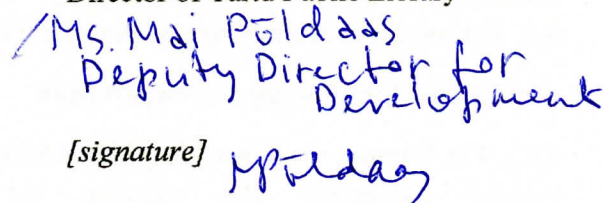 /Ms. Mai Põldaas
Deputy Director for
Development
[signature] MPõldaas